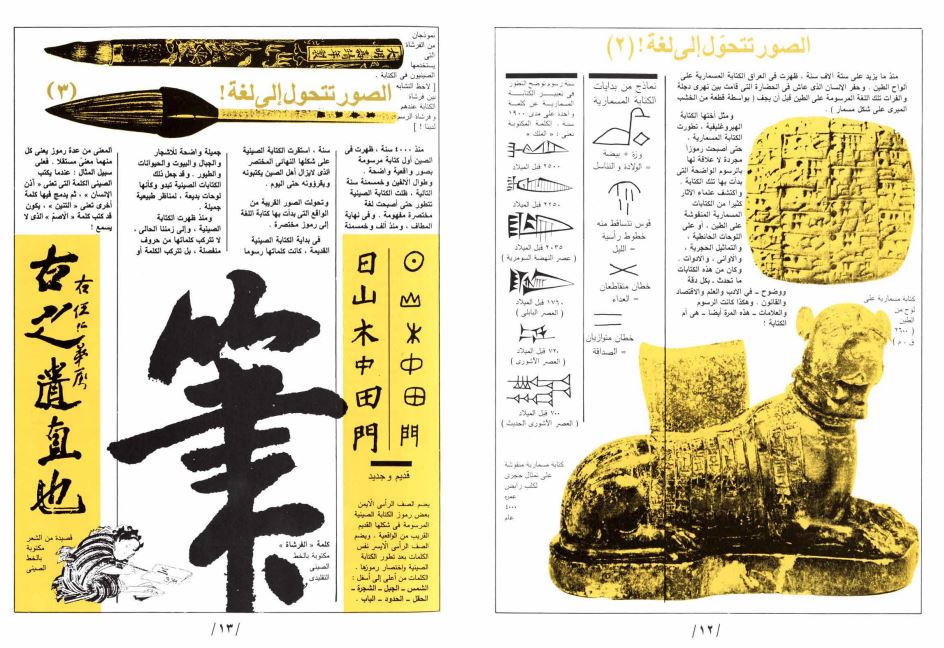 الصور تتحوّل إلى لغة ! (٢)
منذ ما يزيد على ستة آلاف سنة ، ظهرت فى العراق الكتابة المسمارية على
ألواح الطين . وحفر الإنسان الذى عاش فى الحضارة التى قامت بين نهرى دجلة
والفرات تلك اللغة المرسومة على الطين قبل أن يجف ( بواسطة قطعة من الخشب
المبرى على شكل مسمار ) .
ومثل أختها الكتابة
الهيروغليفية ، تطورت
الكتابة المسمارية ،
حتى أصبحت رموزاً
مجردة لا علاقة لها
بالرسوم الواضحة التى
بدأت بها تلك الكتابة .
واكتشف علماء الآثار
كثيرا من الكتابات
المسمارية المنقوشة
على الطين ، أو على
اللوحات الحائطية ،
والتماثيل الحجرية ،
والأوانى ، والأدوات .
وكان من هذه الكتابات
ما تحدث ـ بكل دقة
ووضوح ـ فى الأدب والعلم والاقتصاد
والقانون . وهكذا كانت الرسوم
والعلامات ـ هذه المرة أيضا ـ هى أم
الكتابة !
نماذج من بدايات
الكتابة المسمارية
وزة + بيضة
= الولادة والتناسل
قوس تتساقط منه
خطوط رأسية
= الليل
خطان متقاطعان
= العداء
خطان متوازيان
= الصداقة
ستة رسوم توضح التطور
فى تعبير الكتابة
المسمارية عن كلمة
واحدة على مدى ١٩٠٠
سنة . الكلمة المكتوبة
تعنى : « الملك »
٢٥٠٠ قبل الميلاد
٢٢٥٠ قبل الميلاد
٢٠٣٥ قبل الميلاد
( عصر النهضة السومرية )
١٧٦٠ قبل الميلاد
( العصر البابلى )
٧٢٠ قبل الميلاد
( العصر الآشورى )
٧٠٠ قبل الميلاد
( العصر الآشورى الحديث )
كتابة مسمارية على
لوح من
الطين
( ٢٦٠٠
ق . م )
كتابة مسمارية منقوشة
على تمثال حجرى
لكلب رابض
عمره
٤٠٠٠
عام
/١٢/
نموذجان
من الفرشاة
التى
يستخدمها
الصينيون فى الكتابة .
[ لاحظ التشابه
بين فرشاة
الكتابة عندهم
وفرشاة الرسم
لدينا ! ]
الصور تتحول إلى لغة ! (٣)
منذ ٤٠٠٠ سنة ، ظهرت فى
الصين أول كتابة مرسومة
بصور واقعية واضحة .
وطوال الألفين وخمسمئة سنة
التالية ، ظلت الكتابة الصينية
تتطور حتى أصبحت لغة
مختصرة مفهومة . وفى نهاية
المطاف ، ومنذ ألف وخمسمئة
سنة ، استقرت الكتابة الصينية
على شكلها النهائى المختصر
الذى لايزال أهل الصين يكتبونه
ويقرؤونه حتى اليوم .
وتحولت الصور القريبة من
الواقع التى بدأت بها كتابة اللغة
إلى رموز مختصرة .
فى بداية الكتابة الصينية
القديمة ، كانت كلماتها رسوما
جميلة واضحة للأشجار
والجبال والبيوت والحيوانات
والطيور . وقد جعل ذلك
الكتابات الصينية تبدو وكأنها
لوحات بديعة ، لمناظر طبيعية
جميلة .
ومنذ ظهرت الكتابة
الصينية ، وإلى زمننا الحالى ،
لا تتركب كلماتها من حروف
منفصلة ، بل تتركب الكلمة أو
المعنى من عدة رموز يعنى كل
منهما معنىً مستقلا . فعلى
سبيل المثال : عندما يكتب
الصينى الكلمة التى تعنى « أذن
الإنسان » ، ثم يدمج فيها كلمة
أخرى تعنى « التنين » ، يكون
قد كتب كلمة « الأصمّ » الذى لا
يسمع !
日
山
木
中
田
門
قديم وجديد
يضم الصف الرأسى الأيمن
بعض رموز الكتابة الصينية
المرسومة فى شكلها القديم
القريب من الواقعية . ويضم
الصف الرأسى الأيسر نفس
الكلمات بعد تطور الكتابة
الصينية واختصار رموزها .
الكلمات من أعلى إلى أسفل :
الشمس ـ الجبل ـ الشجرة ـ
الحقل ـ الحدود ـ الباب .
筆
كلمة « الفرشاة »
مكتوبة بالخط
الصينى
التقليدى
古之遺直也
قصيدة من الشعر
مكتوبة
بالخط
الصينى
/١٣/